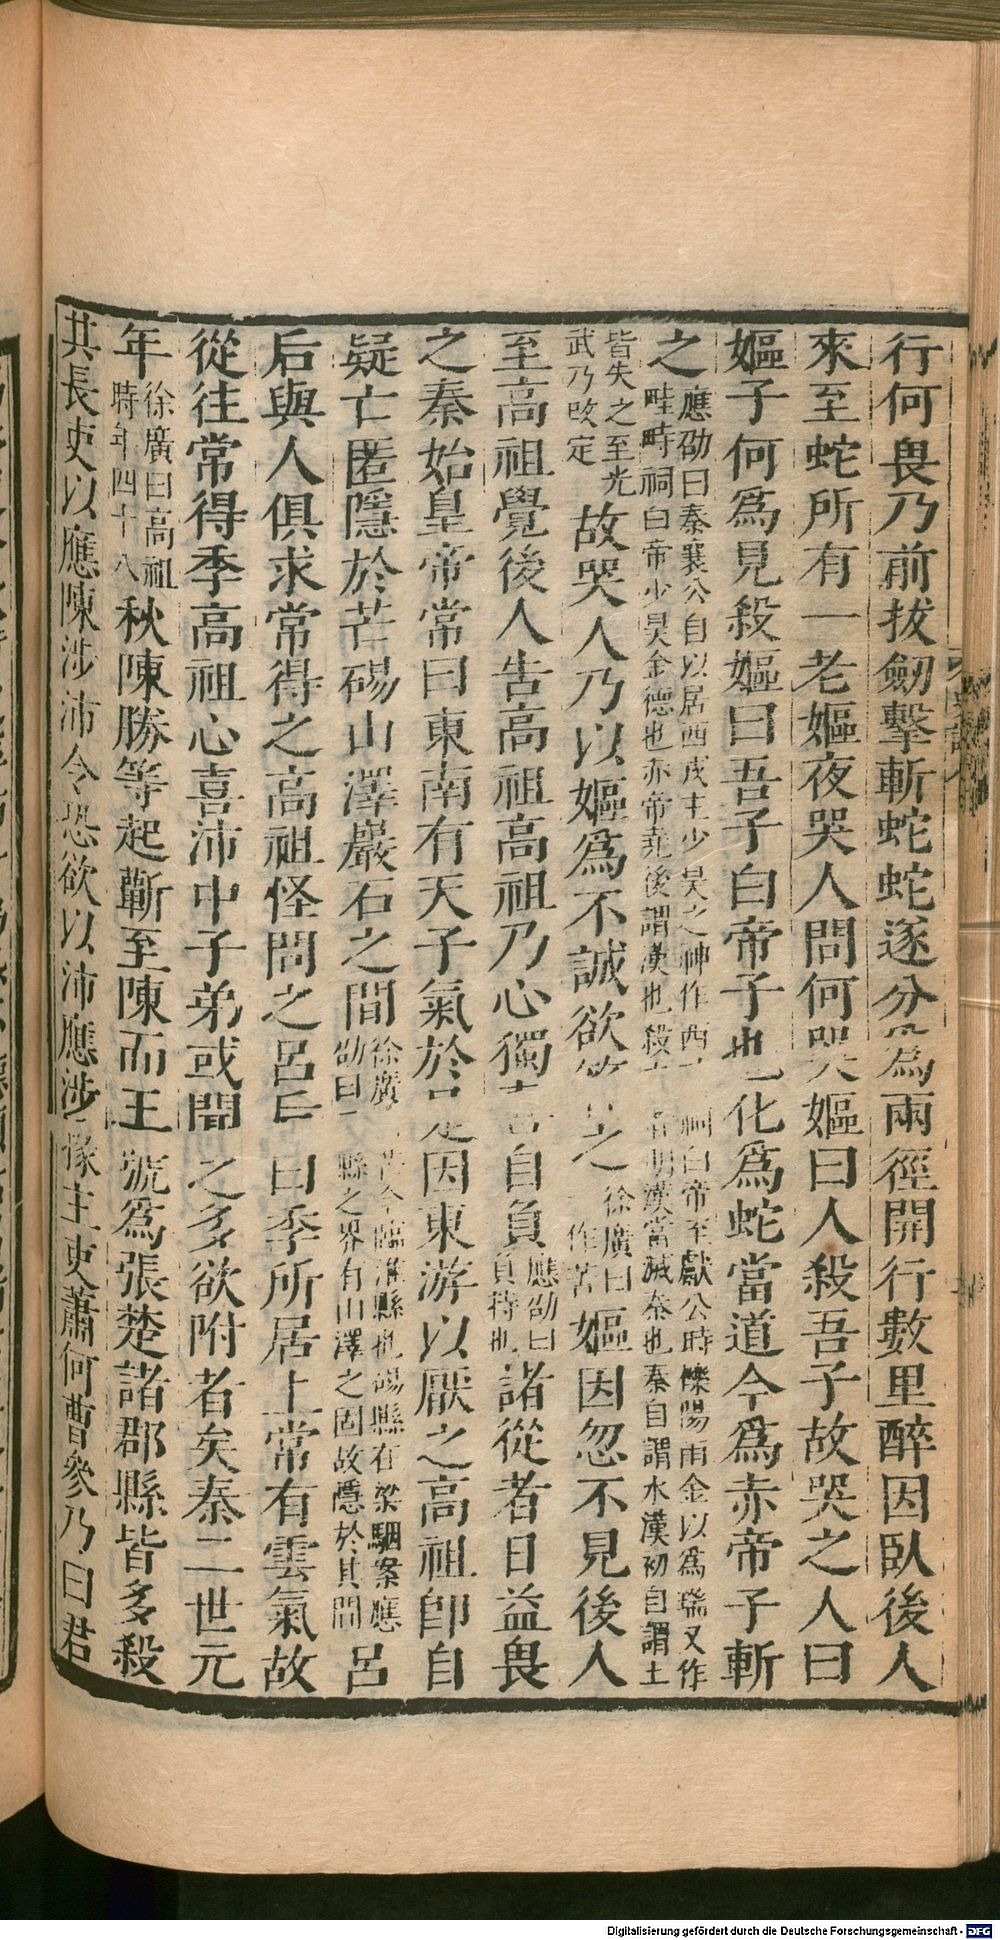 行何畏乃前拔劒擊斬蛇蛇遂分爲兩徑開行數里醉因臥後人
來至蛇所有一老嫗夜哭人問何哭嫗曰人殺吾子故哭之人曰
嫗子何爲見殺嫗曰吾子白帝子也化爲蛇當道今爲赤帝子斬
之 應劭曰秦襄公自以居西戎主少昊之神作西 祠白帝至獻公時櫟陽雨金以爲瑞又作
畦畤祠白帝少昊金德也赤帝堯後謂漢也殺 者明漢當滅秦也秦自謂水漢初自謂土
皆失之至光
武乃改定 故哭人乃以嫗爲不誠欲 之 徐廣曰
作苦 嫗因忽不見後人
至高祖覺後人告高祖高祖乃心獨喜自負 應劭曰
負恃也 諸從者日益畏
之秦始皇帝常曰東南有天子氣於是因東游以厭之高祖卽自
疑亡匿隱於芒碭山澤巖石之間 徐廣 芒今臨淮縣也碭縣在梁駰案應
劭曰 縣之界有山澤之固故隱於其間 呂
后與人俱求常得之高祖怪問之呂后曰季所居上常有雲氣故
從往常得季高祖心喜沛中子弟或聞之多欲附者矣秦二世元
年 徐廣曰高祖
時年四十八 秋陳勝等起蘄至陳而王號爲張楚諸郡縣皆多殺
其長吏以應陳涉沛令恐欲以沛應涉掾主吏蕭何曹參乃曰君
Digitalisierung gefördert durch die Deutsche Forschungsgemeinschaft - DFG